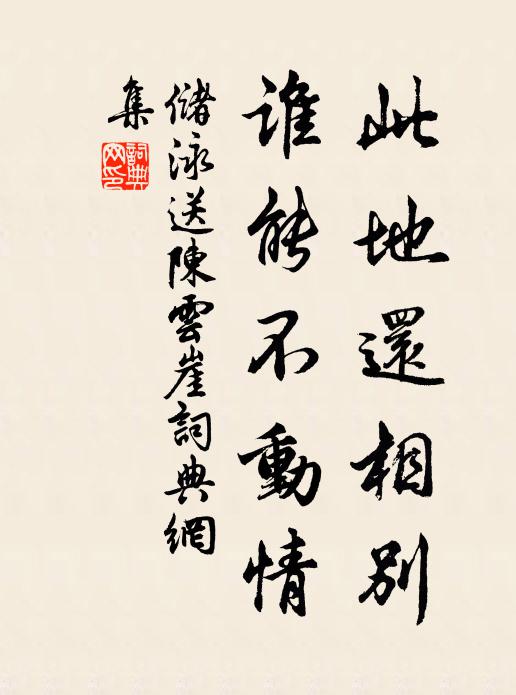 此地還相別
誰能不動情
儲泳送陳雲崖詞典網
集
詞典
网印